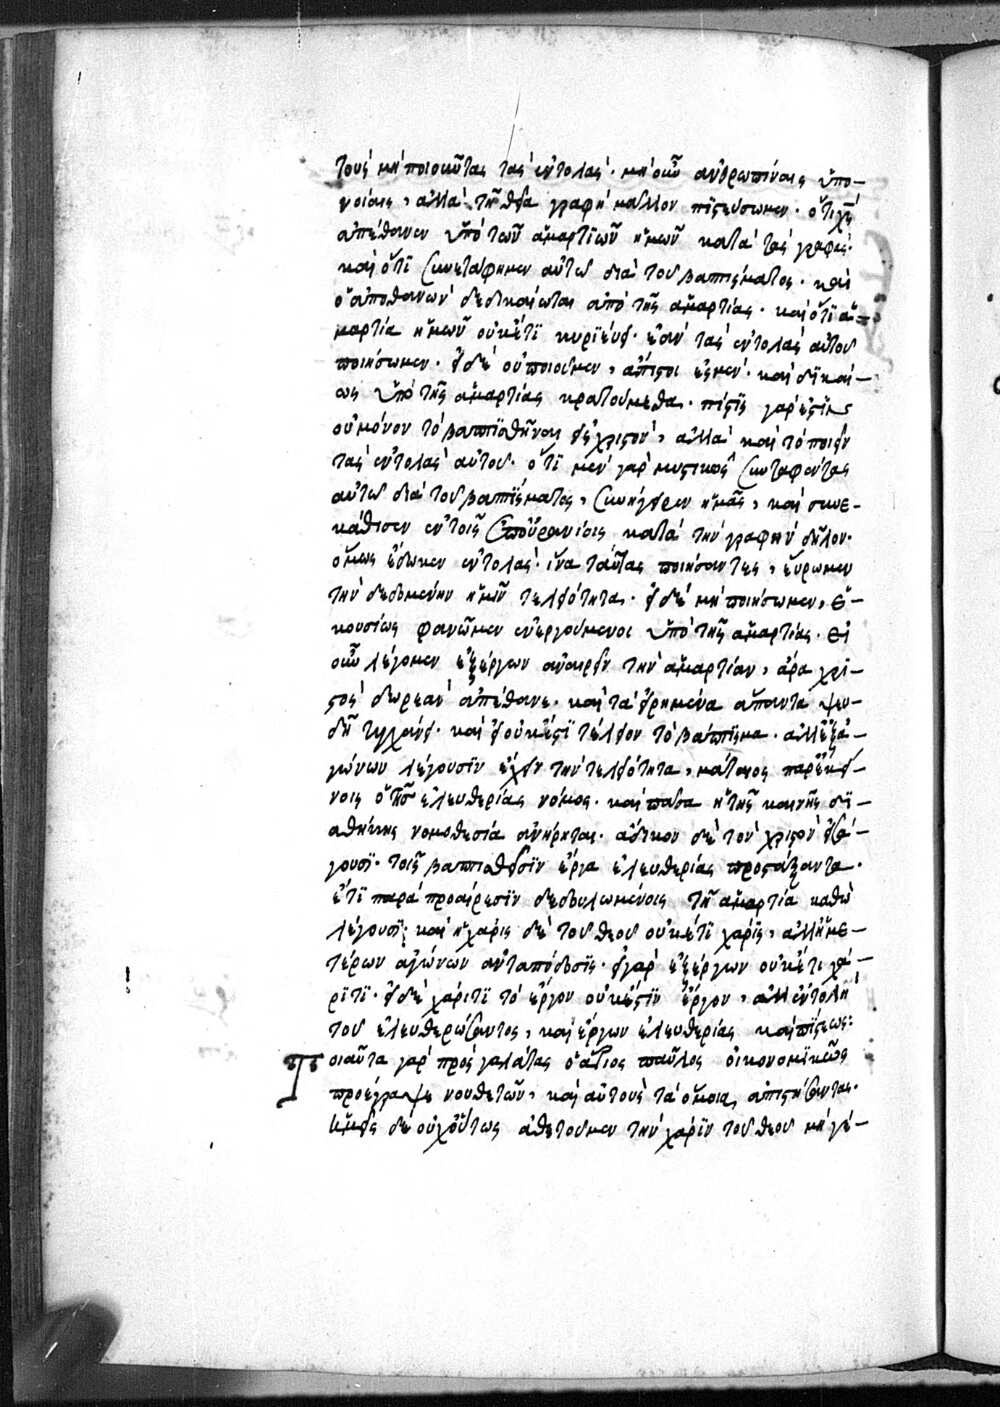 τοὺς μὴ ποιοῦντας τὰς ἐντολάς· μὴ οὖν ἀνθρωπίναις ὑπο-
νοίαις, ἀλλὰ τῇ θεία γραφῇ μᾶλλον πιστεύσωμεν· ὅτι χς
ἀπέθανεν ὑπὲρ τῶν ἁμαρτιῶν ἡμῶν κατὰ τὰς γραφάς·
καὶ ὅτι συνετάφημεν αὐτῶ διὰ τοῦ βαπτίσματος· καὶ
ὁ ἀποθανὼν δεδικαίωται ἀπὸ τῆς ἁμαρτίας· καὶ ὅτι ἁ-
μαρτία ἡμῶν οὐκέτι κυριεύει· ἐὰν τὰς ἐντολὰς αὐτοῦ
ποιήσωμεν· εἰ δὲ οὐ ποιοῦμεν, ἄπιστοι ἐσμέν· καὶ δικαί-
ως ὑπὸ τῆς ἁμαρτίας κρατούμεθα· πίστις γάρ ἐστιν
οὐ μόνον τὸ βαπτισθῆναι εἰς χριστόν, ἀλλὰ καὶ τὸ ποιεῖν
τὰς ἐντολὰς αὐτοῦ· ὅτι μὲν γὰρ μυστικῶς συνταφέντας
αὐτῶ διὰ τοῦ βαπτίσματος, συνήγειρεν ἡμᾶς, καὶ συνε-
κάθισεν ἐν τοῖς ἐπουρανίοις κατὰ τὴν γραφὴν δῆλον·
ὅμως ἔδωκεν ἐντολάς· ἵνα ταύτας ποιήσαντες, εὕρωμεν
τὴν δεδομένην ἡμῖν τελειότητα· εἰ δὲ μὴ ποιήσωμεν, ἑ-
κουσίως φανῶμεν ἐνεργούμενοι ὑπὸ τῆς ἁμαρτίας· εἰ
οὖν λέγομεν ἐξ ἔργων ἀναιρεῖν τὴν ἁμαρτίαν, ἄρα χρι-
στὸς δωρεὰν ἀπέθανε· καὶ τὰ εἰρημένα ἅπαντα ψευ-
δῆ τυγχάνει· καὶ εἰ οὐκ ἔστι τέλειον τὸ βάπτισμα· ἀλλ' ἐξ ἀ-
γώνων λέγουσιν ἔχειν τὴν τελειότητα, μάταιος παρ' ἐκεί-
νοις ὁ τῆς ἐλευθερίας νόμος· καὶ πᾶσα ἡ τῆς καινῆς δι-
αθήκης νομοθεσία ἀνήρηται· ἄδικον δὲ τὸν χριστὸν εἰσά-
γουσι· τοῖς βαπτισθεῖσιν ἔργα ἐλευθερίας προστάξαντα·
ἔτι παρὰ προαίρεσιν δεδουλωμένοις τῇ ἁμαρτία καθὼς
λέγουσι· καὶ ἡ χάρις δὲ τοῦ θεοῦ οὐκέτι χάρις, ἀλλ' ἡμε-
τέρων ἀγώνων ἀνταπόδοσις· εἰ γὰρ ἐξ ἔργων οὐκέτι χά-
ριτι· εἰ δὲ χάριτι τὸ ἔργον οὐκ ἔστιν ἔργον, ἀλλ' ἐντολὴ
τοῦ ἐλευθερώσαντος, καὶ ἔργων ἐλευθερίας καὶ πίστεως:
Τοιαῦτα γὰρ πρὸς γαλάτας ὁ ἅγιος παῦλος οἰκονομικῶς
προέγραψε νουθετῶν, καὶ αὐτοὺς τὰ ὅμοια ἀπιστήσαντας·
ἡμεῖς δὲ οὐχ οὕτως ἀθετοῦμεν τὴν χάριν τοῦ θεοῦ μὴ γέ-